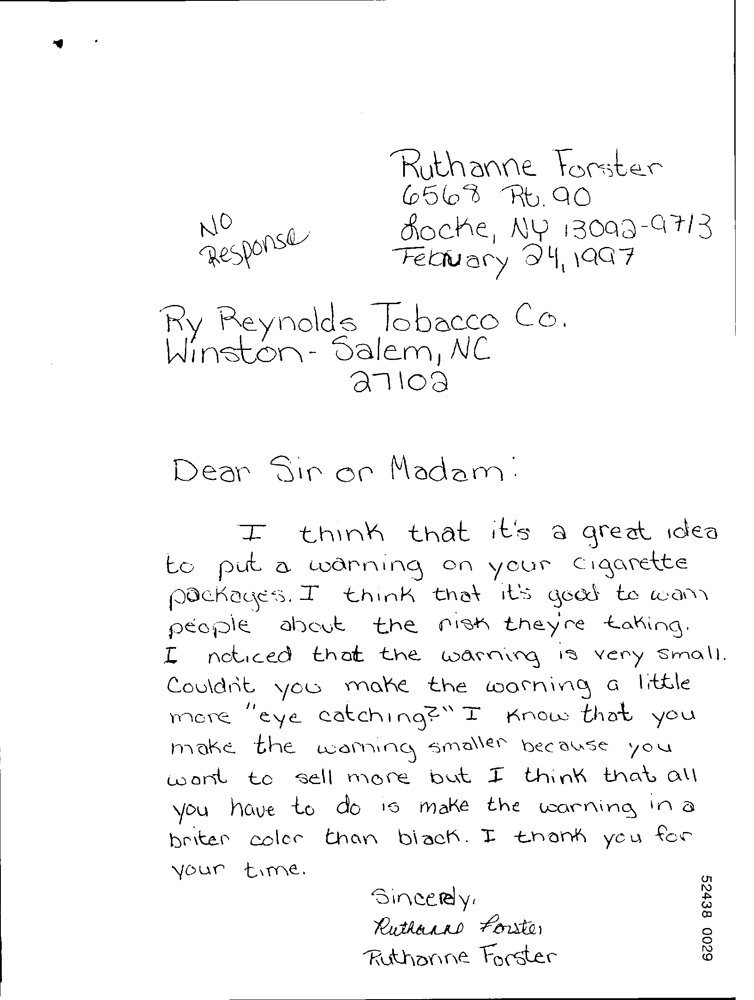 Ruthanne Forster
6568 Rt. 90
Locke, NY 13092-9713
Febuary 24, 1997
NO
Response
Ry Reynolds Tobacco Co.
Winston-Salem, NC
27102
Dear Sir or Madam:
I think that it's a great idea
to put a warning on your cigarette
packages. I think that it's good to warn
people about the risk they're taking.
I noticed that the warning is very small.
Couldn't you make the warning a little
more "eye catching?" I know that you
make the warning smaller because you
want to sell more but I think that all
you have to do is make the warning in a
briter color than black. I thank you for
your time.
Sincerely,
Ruthanne Forster
Ruthanne Forster
52438 0029